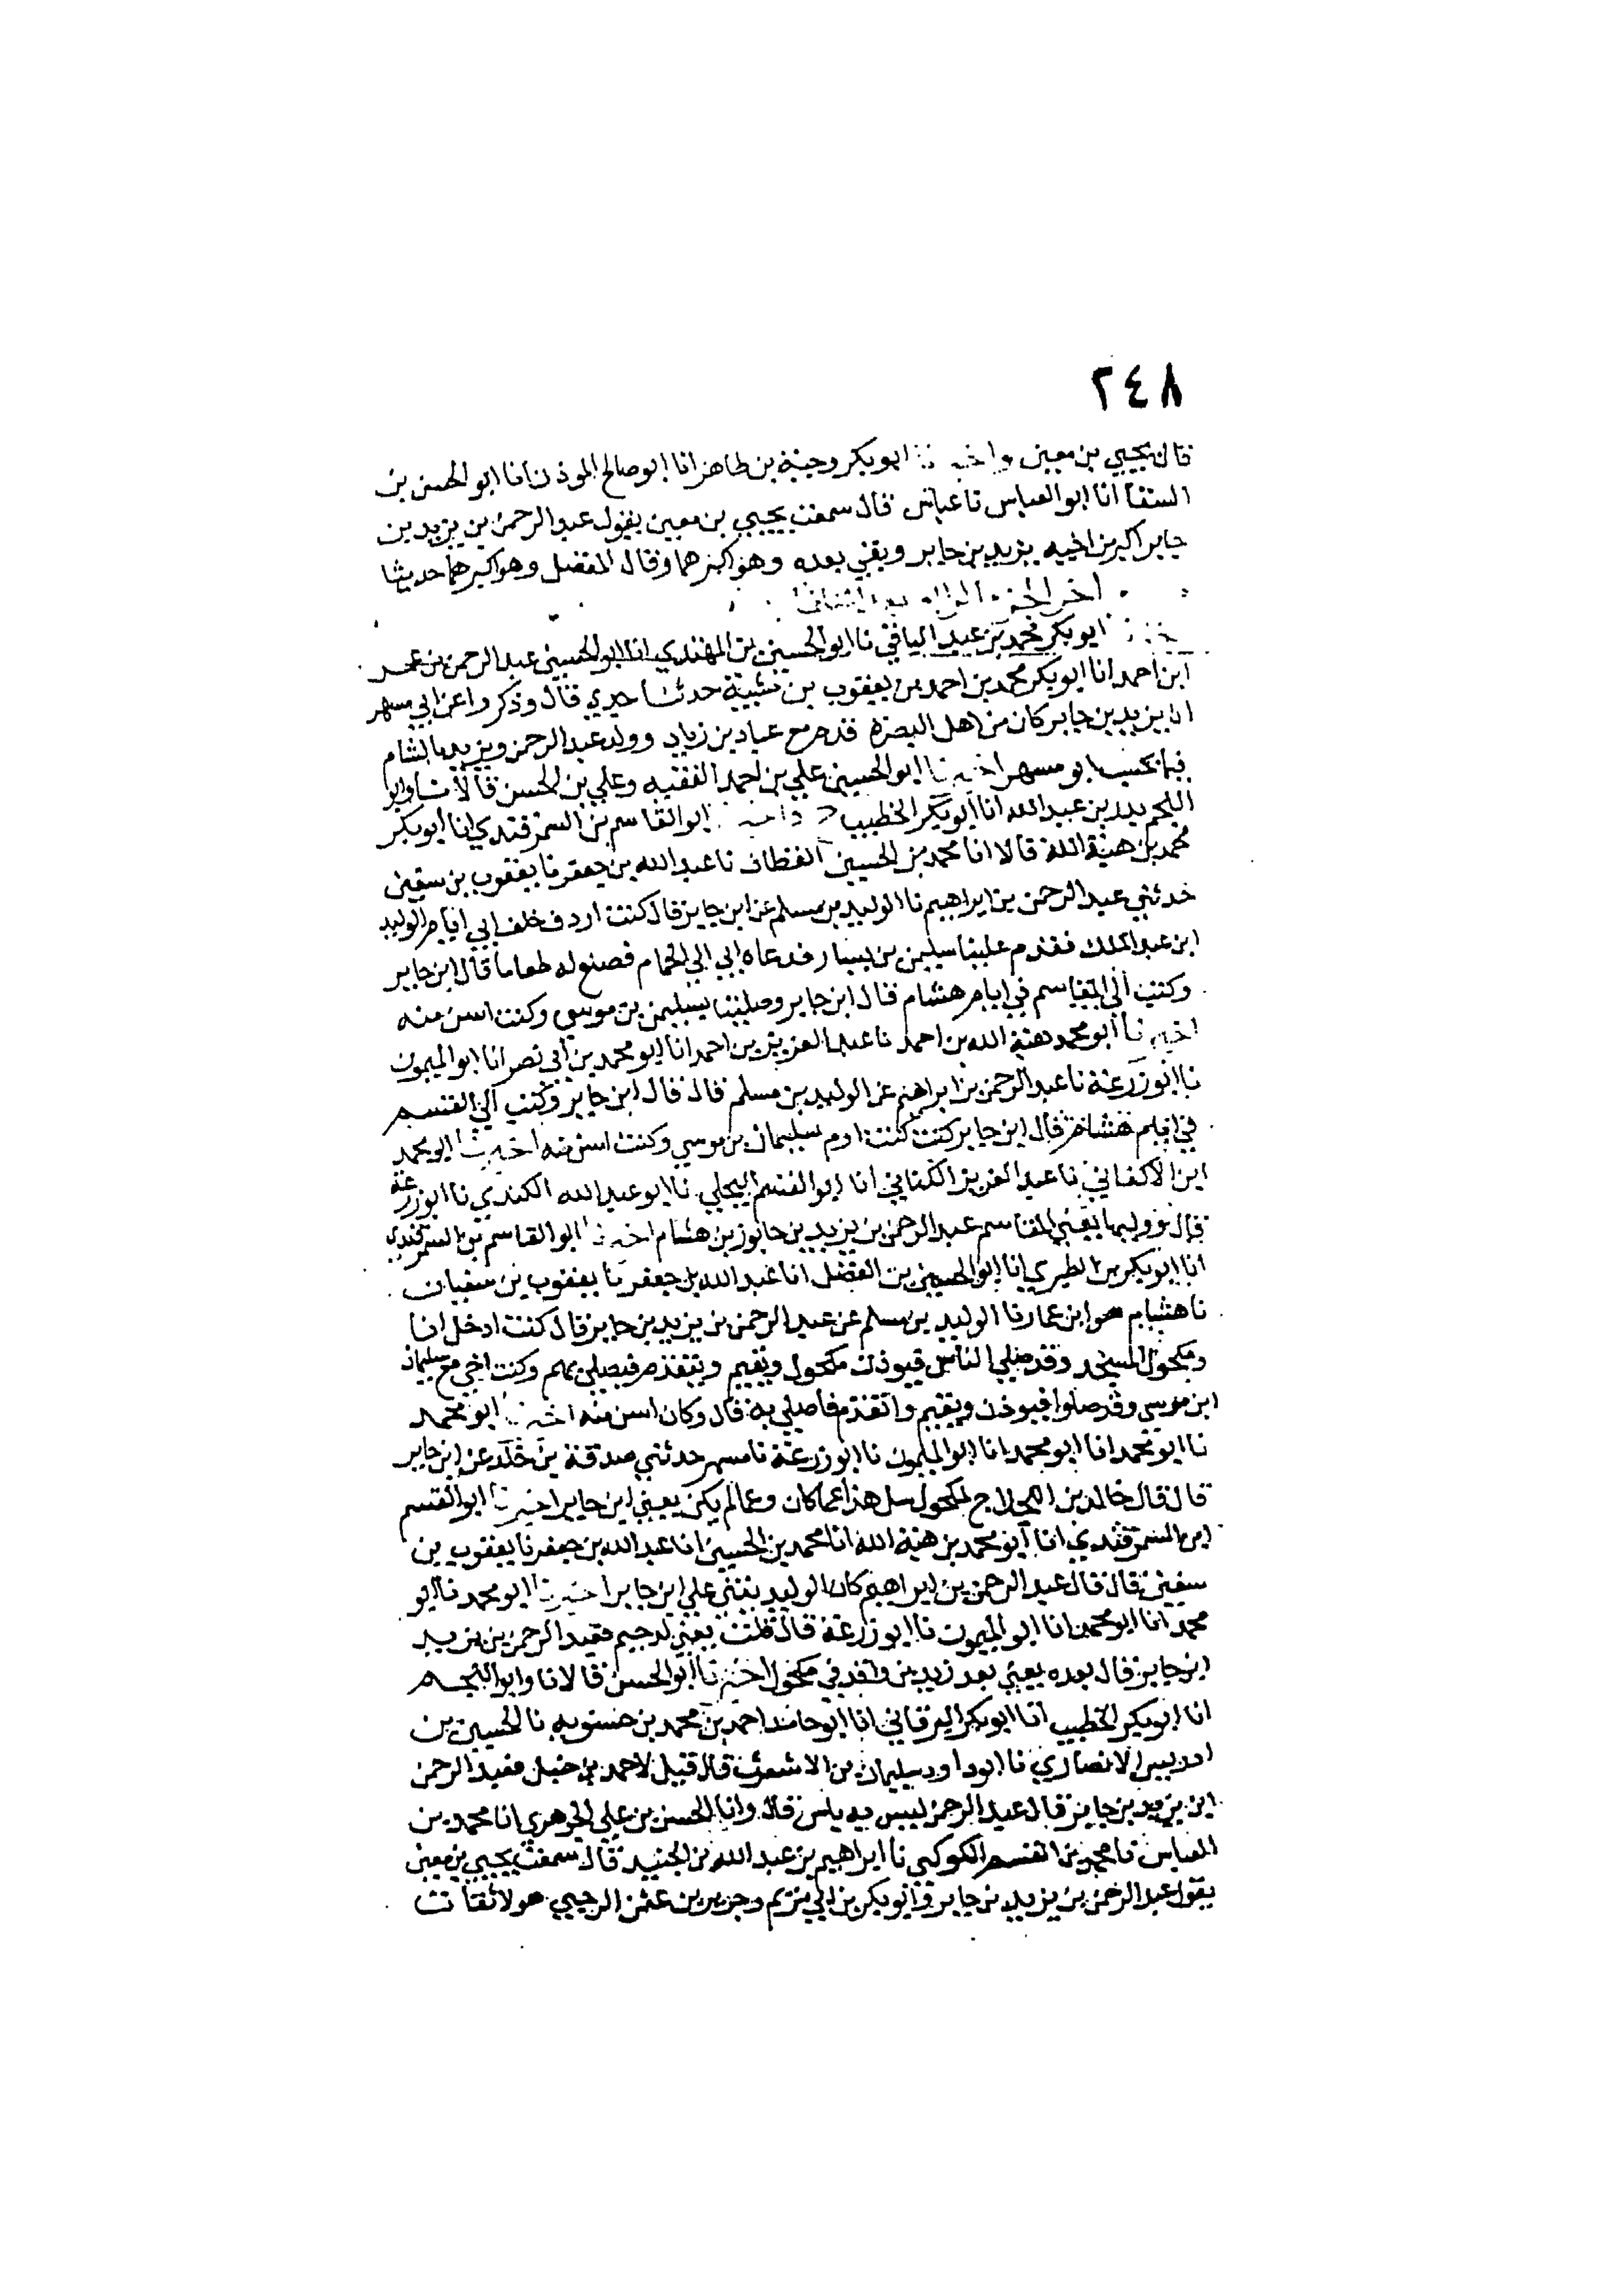 ٢٤٨
قال يحيي بن معين واخبرنا ابو بكر وجيه بن طاهر انا ابو صالح الموذن انا ابو الحسن بن
السقا انا ابو العباس نا عباس قال سمعت يحيي بن معين يقول عبد الرحمن بن يزيد بن
جابر اكبر من اخيه يزيد بن جابر وبقي بعده وهو اكبرهما وقال المفضل وهو اكبرهما حديثا
اخر الجزء
ابو بكر محمد بن عبد الباقي نا ابو الحسين بن المهتدي انا ابو الحسين عبد الرحمن بن عمر
ابن احمد انا ابو بكر محمد بن احمد بن يعقوب بن شيبة حدثنا جدي قال وذكروا عن ابي مسهر
ان يزيد بن جابر كان من اهل البصرة قدم مع عباد بن زياد وولد عبد الرحمن ويزيد بالشام
فيما يحسب ابو مسهر اخبرنا ابو الحسين علي بن احمد الفقيه وعلي بن الحسن قالا نا وابو
النجم بدر بن عبد الله انا ابو بكر الخطيب ح واخبرنا ابو القاسم بن السمرقندي انا ابو بكر
محمد بن هبة الله قالا انا محمد بن الحسين القطان نا عبد الله بن جعفر نا يعقوب بن سفين
حدثني عبد الرحمن بن ابراهيم نا الوليد بن مسلم عن ابن جابر قال كنت اردف خلف ابي ايام الوليد
ابن عبد الملك فقدم علينا سليمن بن يسار فدعاه ابي الي الحمام فصنع له طعاما قال ابن جابر
وكنت الي المقاسم في ايام هشام قال ابن جابر وصلينا بسليمن بن موسي وكنت اسن منه
اخبرنا ابو محمد هبة الله بن احمد نا عبد العزيز بن احمد انا ابو محمد بن ابي نصر انا ابو الميمون
نا ابو زرعة نا عبد الرحمن بن ابراهيم عن الوليد بن مسلم قال قال ابن جابر وكنت الي القسم
في ايام هشام قال ابن جابر كنت كنت اوم سليمان بن موسي وكنت اسن منه اخبرنا ابو محمد
ابن الاكفاني نا عبد العزيز الكتاني انا ابو القسم البجلي نا ابو عبد الله الكندي نا ابو زرعة
قال نوليها يعني المقاسم عبد الرحمن بن يزيد بن جابر زمن هشام اخبرنا ابو القاسم بن السمرقندي
انا ابو بكر بن الطبري انا ابو الحسين بن الفضل انا عبد الله بن جعفر نا يعقوب بن سفيان
نا هشام هو ابن عمار نا الوليد بن مسلم عن عبد الرحمن بن يزيد بن جابر قال كنت ادخل انا
ومكحول المسجد وقد صلي الناس فيوذن مكحول ويقيم ويتقدم فيصلي بهم وكنت اجي مع سليمان
ابن موسي وقد صلوا فيوذن ويقيم واتقدم فاصلي به قال وكان اسن منه اخبرنا ابو محمد
نا ابو محمد انا ابو محمد انا ابو الميمون نا ابو زرعة نا مسهر حدثني صدقة بن خالد عن ابن جابر
قال قال خالد بن اللجلاج لمكحول سل هذا عما كان وعما لم يكن يعني ابن جابر اخبرنا ابو القسم
ابن السمرقندي انا ابو محمد بن هبة الله انا محمد بن الحسين انا عبد الله بن جعفر نا يعقوب بن
سفين قال قال عبد الرحمن بن ابراهيم كان الوليد يثني علي ابن جابر اخبرنا ابو محمد نا ابو
محمد انا ابو محمد انا ابو الميمون نا ابو زرعة قال قلت يعني لدحيم فعبد الرحمن بن يزيد
ابن جابر قال بعده يعني بعد زيد بن واقد في مكحول اخبرنا ابو الحسن قالا نا وابو النجم
انا ابو بكر الخطيب انا ابو بكر البرقاني انا ابو حامد احمد بن محمد بن حسنويه نا الحسين بن
ادريس الانصاري نا ابو داود سليمان بن الاشعث قال قيل لاحمد بن حنبل فعبد الرحمن
ابن يزيد بن جابر قال عبد الرحمن ليس به باس قال وانا الحسن بن علي الجوهري انا محمد بن
العباس نا محمد بن القسم الكوكبي نا ابراهيم بن عبد الله بن الجنيد قال سمعت يحيي بن معين
يقول عبد الرحمن بن يزيد بن جابر وابو بكر بن ابي مريم وحرير بن عثمن الرحبي هولا ثقات